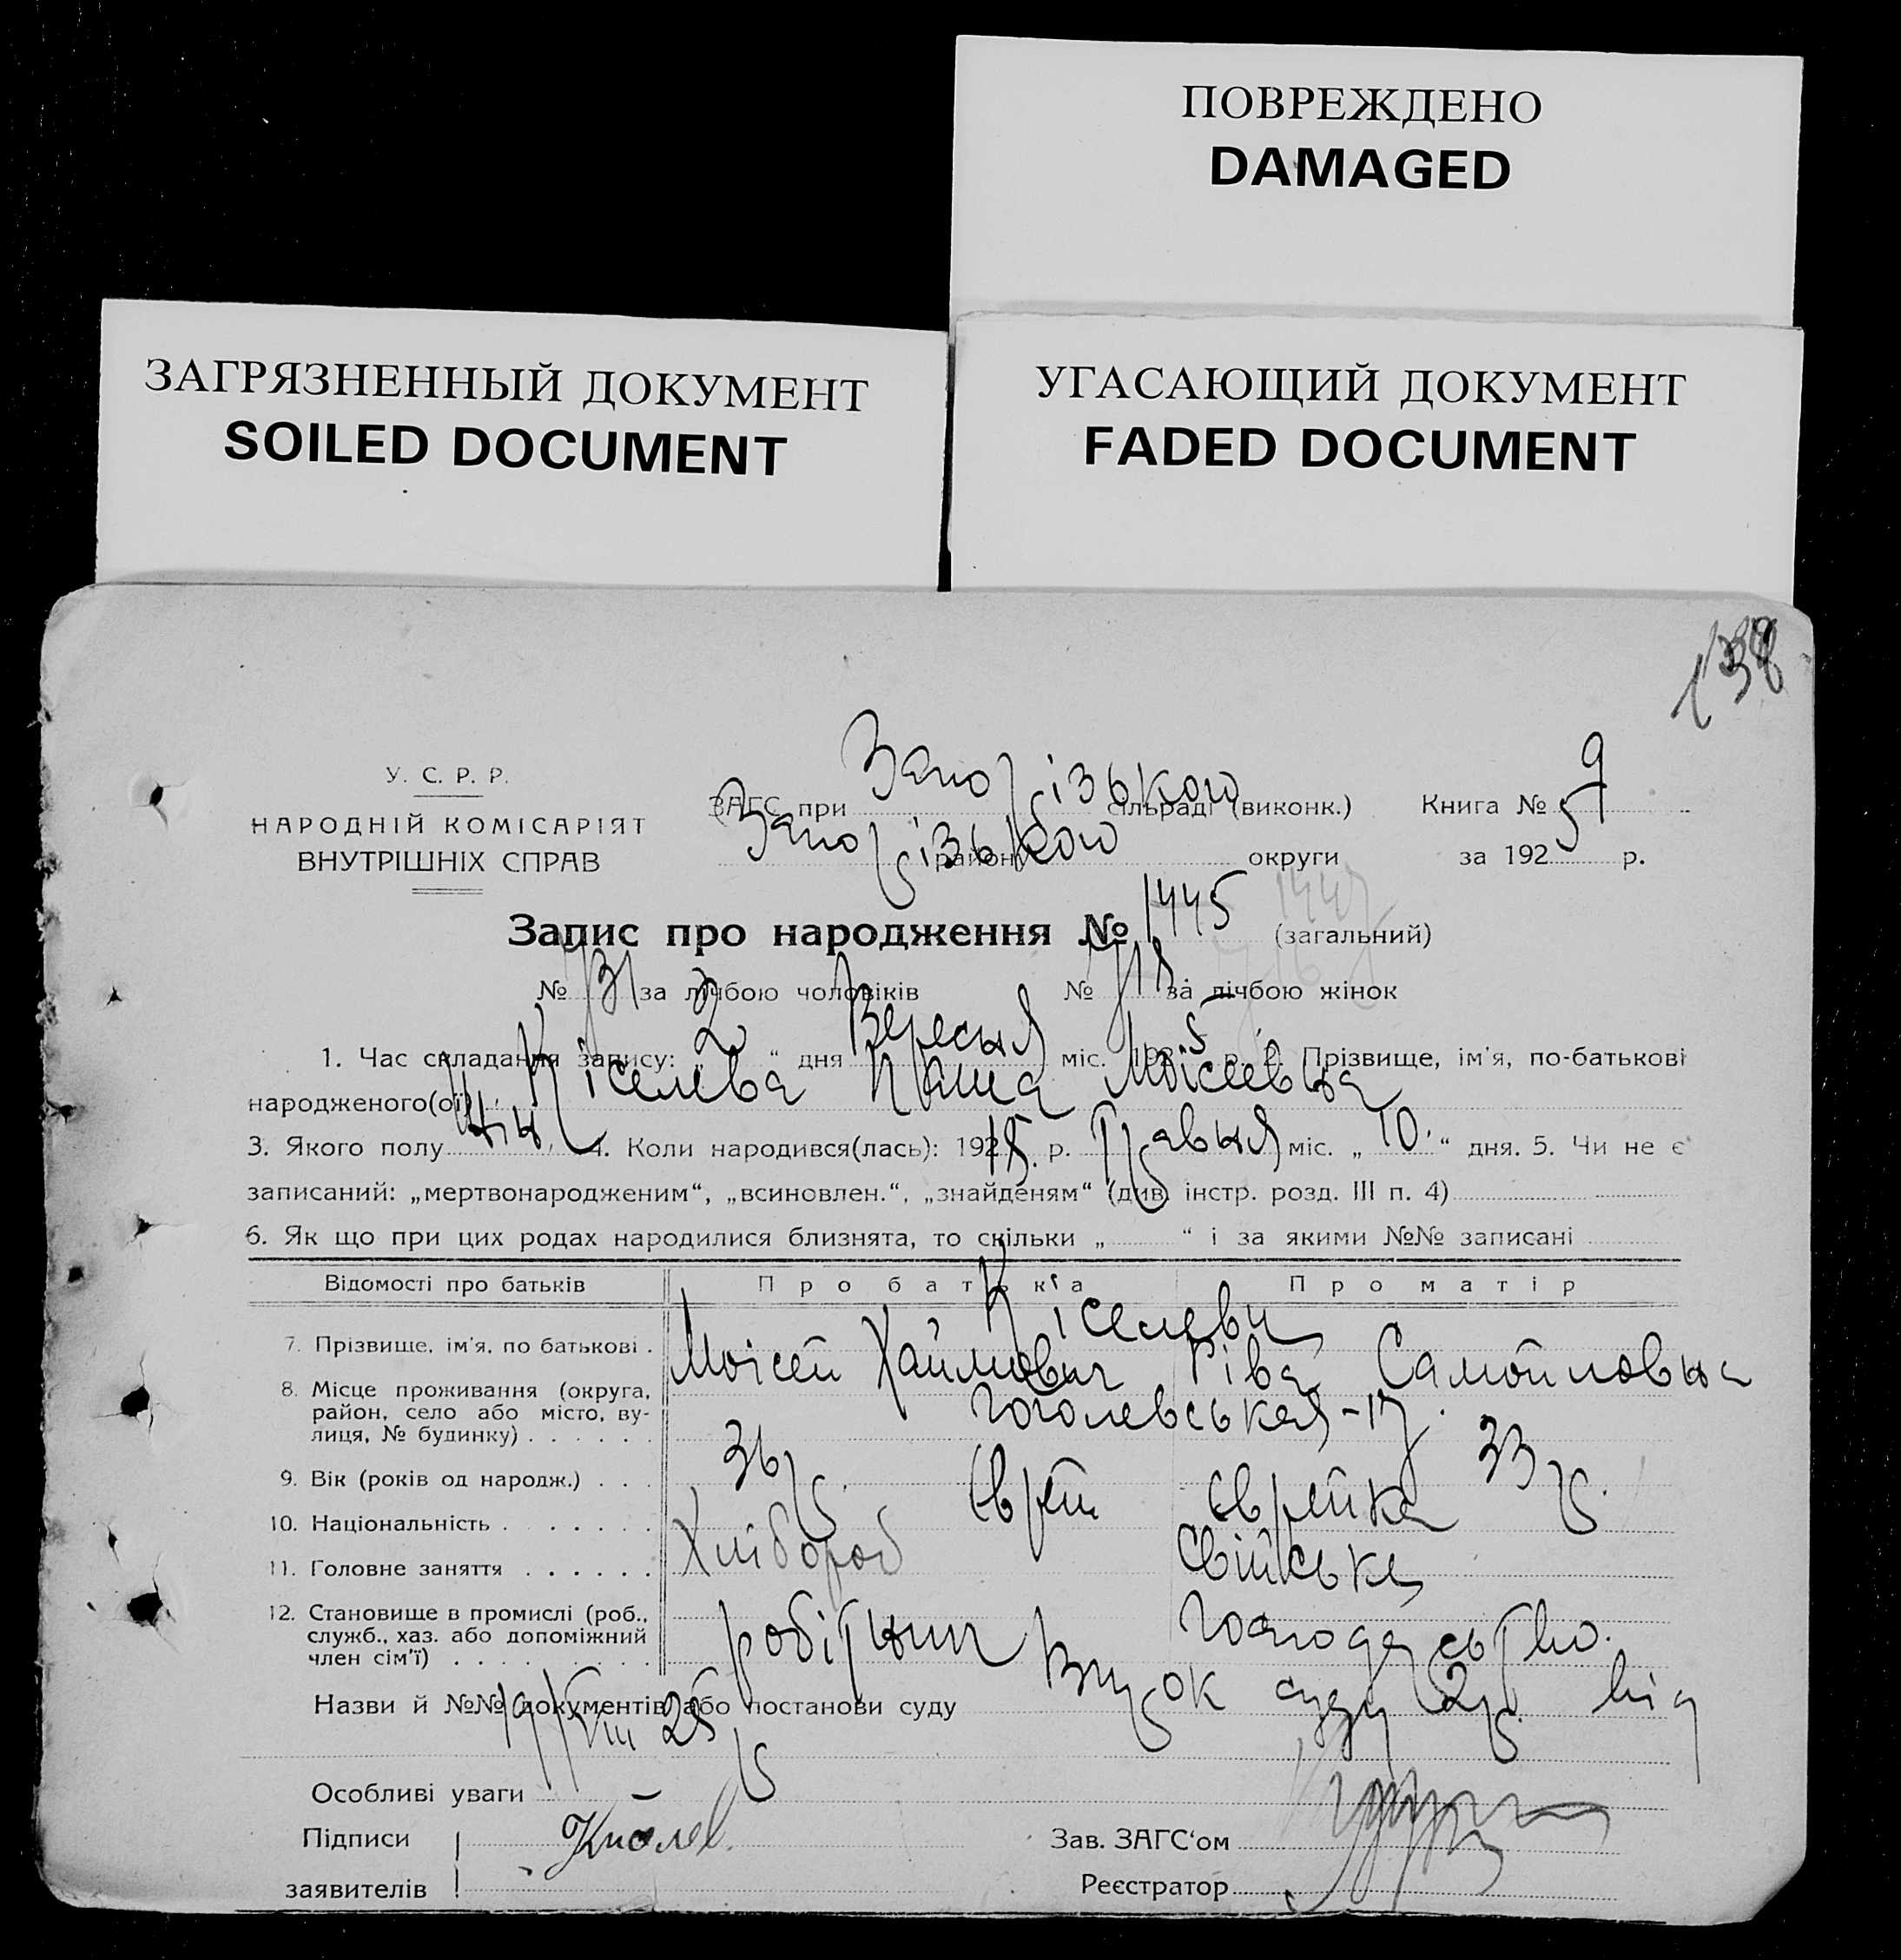 ПОВРЕЖДЕНО
DAMAGED
ЗАГРЯЗНЕННЫЙ ДОКУМЕНТ
SOILED DOCUMENT
УГАСАЮЩИЙ ДОКУМЕНТ
FADED DOCUMENT
138
У. С. Р. Р.
НАРОДНІЙ КОМІСАРІЯТ
ВНУТРІШНІХ СПРАВ
ЗАГС при Запорізького сільраді (виконк.) Книга № 9
Запорізького району округи за 1925 р.
Запис про народження № 1445 (загальний)
№ 731 за лічбою чоловіків № 718 за лічбою жінок
1. Час складання запису: „ 2 “ дня Вересня міс. 192 5 р. 2. Прізвище, ім'я, по-батькові
народженого(ої) Кіселева Паша Моісеевна
3. Якого полу Жін. 4. Коли народився(лась): 192 15. р. Травня міс. „ 10. “ дня. 5. Чи не є
записаний: „мертвонародженим“, „всиновлен.“, „знайденям“ (див. інстр. розд. III п. 4)
6. Як що при цих родах народилися близнята, то скільки „ “ і за якими №№ записані
Відомості про батьків Про батька Про матір
Кіселеви
7. Прізвище, ім'я, по батькові . Моісей Хаймович Ріва Самойловна
8. Місце проживання (округа,
район, село або місто, ву-
лиця, № будинку) . . . . . . Гоголевськая-17.
9. Вік (років од народж.) . . . 36 р. 33 р.
10. Національність . . . . . . . Єврей Єврейка
11. Головне заняття . . . . . . Хлібороб Свійське
12. Становище в промислі (роб.,
служб., хаз. або допоміжний
член сім'ї) . . . . . . . . . робітник
Назви й №№ документів або постанови суду Вирок суду 2 р. від
19/VIII 25 р
Особливі уваги –
Підписи Киселев Зав. ЗАГС'ом
заявителів Реєстратор